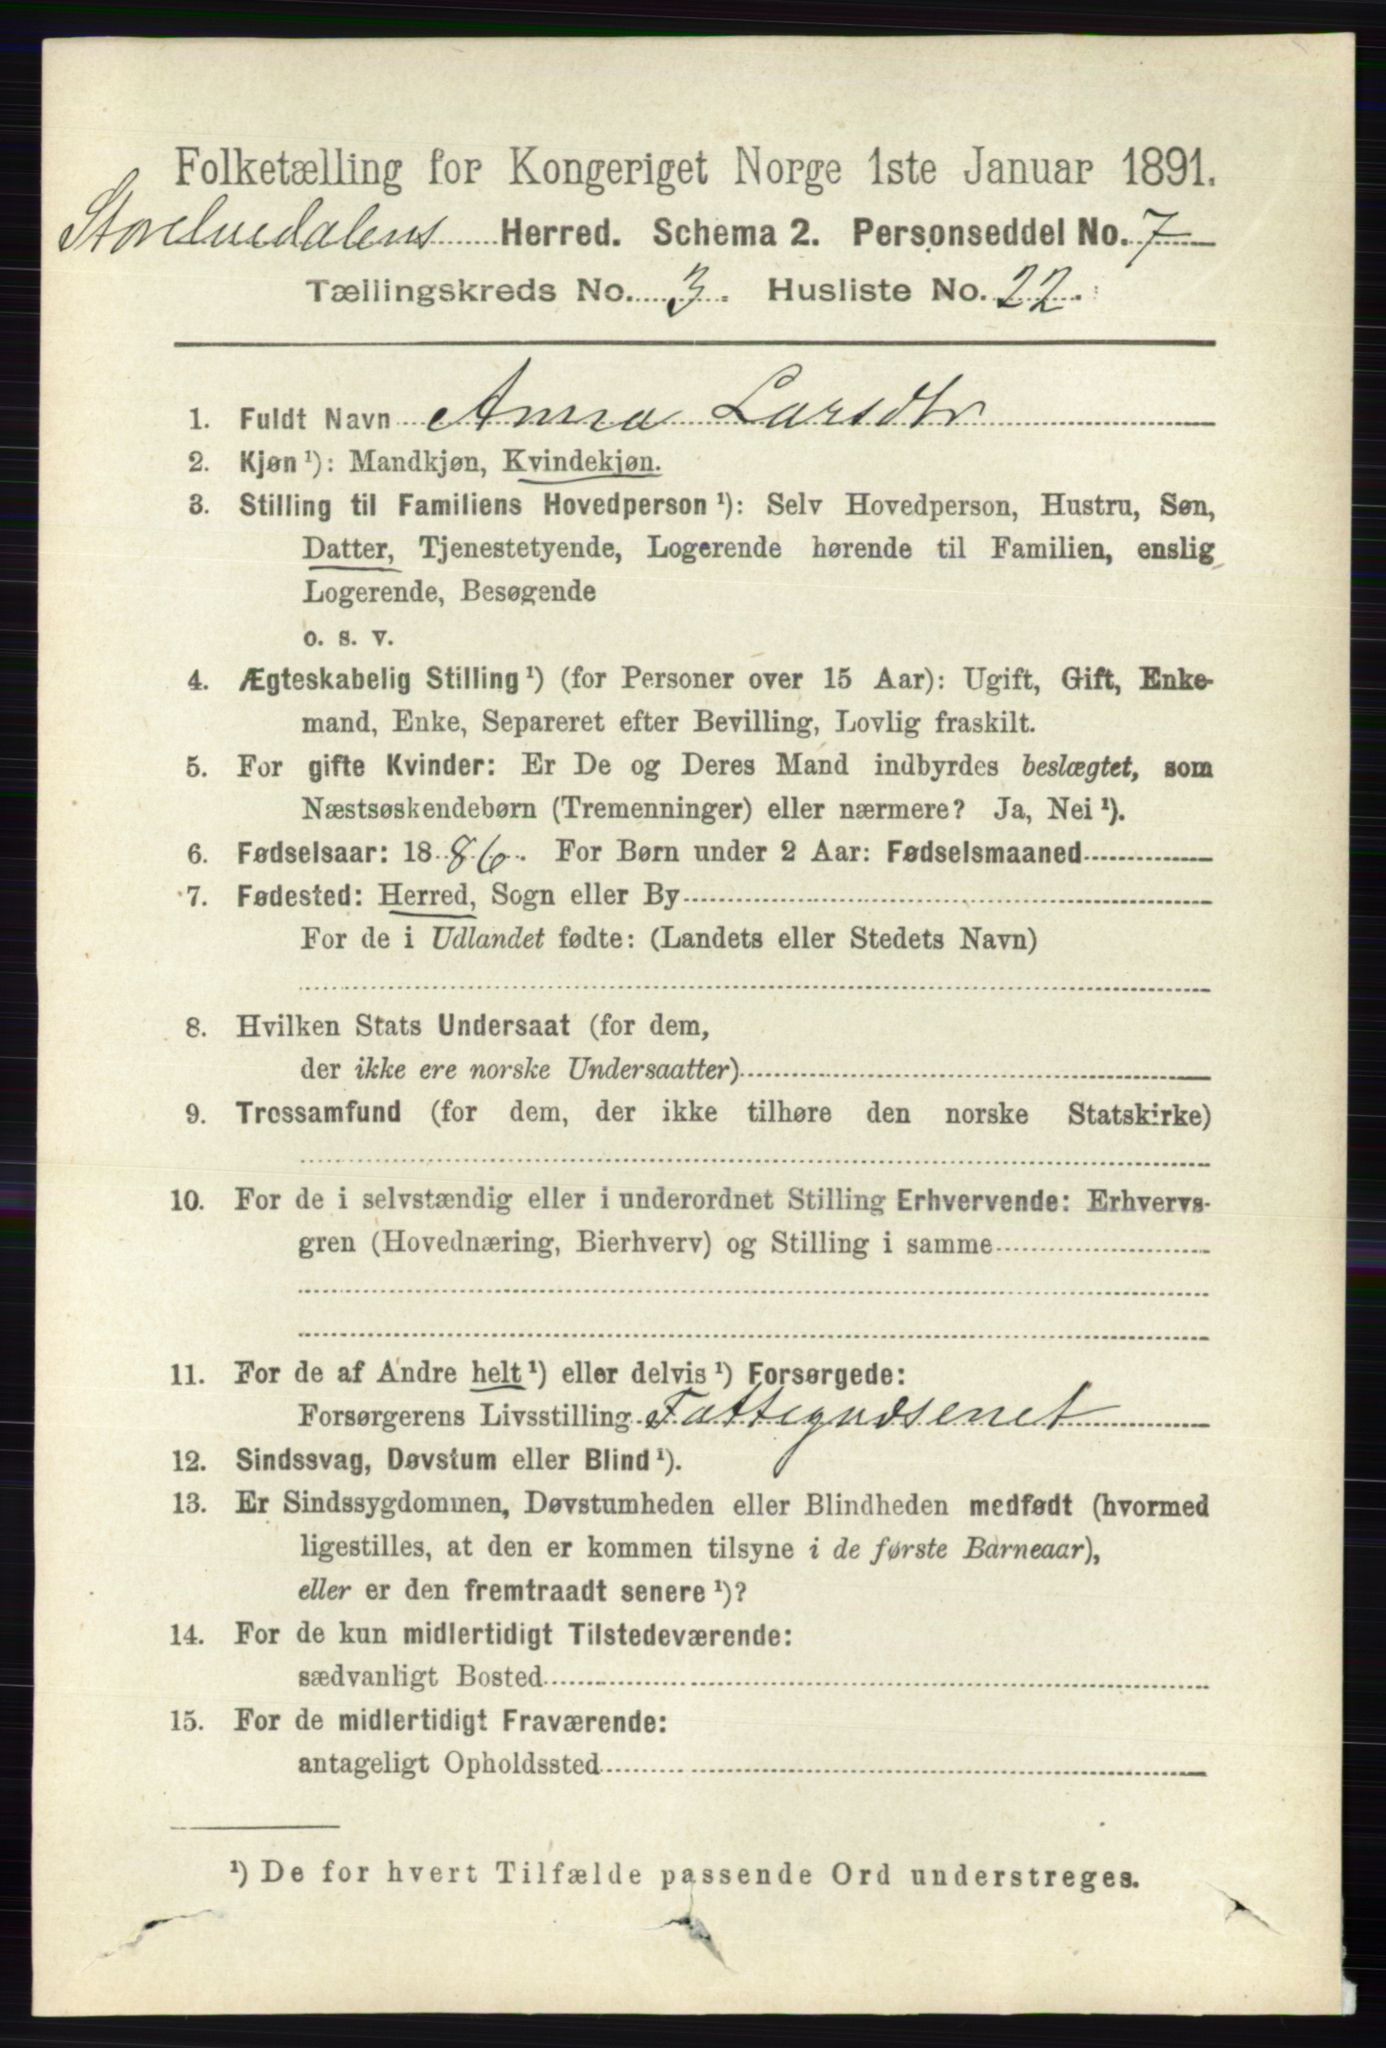 Folketælling for Kongeriget Norge 1ste Januar 1891.
Storelvedalens Herred. Schema 2. Personseddel No. 7
Tællingskreds No. 3. Husliste No. 22.
1. Fuldt Navn Anna Larsdtr
2. Kjøn ¹): Mandkjøn, Kvindekjøn.
3. Stilling til Familiens Hovedperson ¹): Selv Hovedperson, Hustru, Søn,
Datter, Tjenestetyende, Logerende hørende til Familien, enslig
Logerende, Besøgende
o. s. v.
4. Ægteskabelig Stilling ¹) (for Personer over 15 Aar): Ugift, Gift, Enke-
mand, Enke, Separeret efter Bevilling, Lovlig fraskilt.
5. For gifte Kvinder: Er De og Deres Mand indbyrdes beslægtet, som
Næstsøskendebørn (Tremenninger) eller nærmere? Ja, Nei ¹).
6. Fødselsaar: 1886. For Børn under 2 Aar: Fødselsmaaned
7. Fødested: Herred, Sogn eller By
For de i Udlandet fødte: (Landets eller Stedets Navn)
8. Hvilken Stats Undersaat (for dem,
der ikke ere norske Undersaatter)
9. Trossamfund (for dem, der ikke tilhøre den norske Statskirke)
10. For de i selvstændig eller i underordnet Stilling Erhvervende: Erhvervs-
gren (Hovednæring, Bierhverv) og Stilling i samme
11. For de af Andre helt ¹) eller delvis ¹) Forsørgede:
Forsørgerens Livsstilling Fattigvæsenet
12. Sindssvag, Døvstum eller Blind ¹).
13. Er Sindssygdommen, Døvstumheden eller Blindheden medfødt (hvormed
ligestilles, at den er kommen tilsyne i de første Barneaar),
eller er den fremtraadt senere ¹)?
14. For de kun midlertidigt Tilstedeværende:
sædvanligt Bosted
15. For de midlertidigt Fraværende:
antageligt Opholdssted
¹) De for hvert Tilfælde passende Ord understreges.